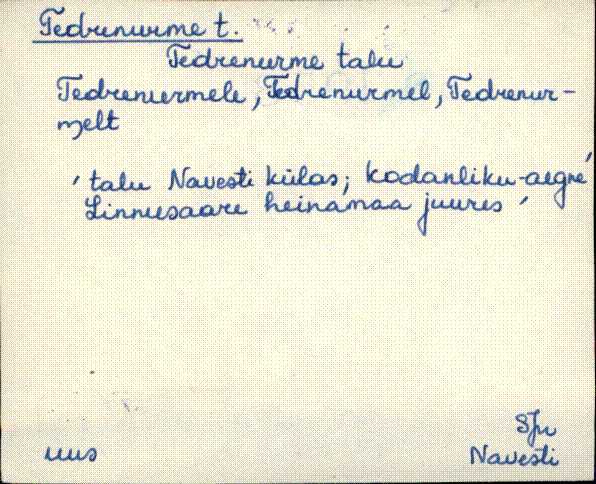 Tedrenurme t.
Tedrenurme talu
Tedrenurmele, Tedrenurmel, Tedrenur-
melt
' talu Navesti külas; kodanliku-aegne'
Linnusaare heinamaa juures '
SJn
uus
Navesti